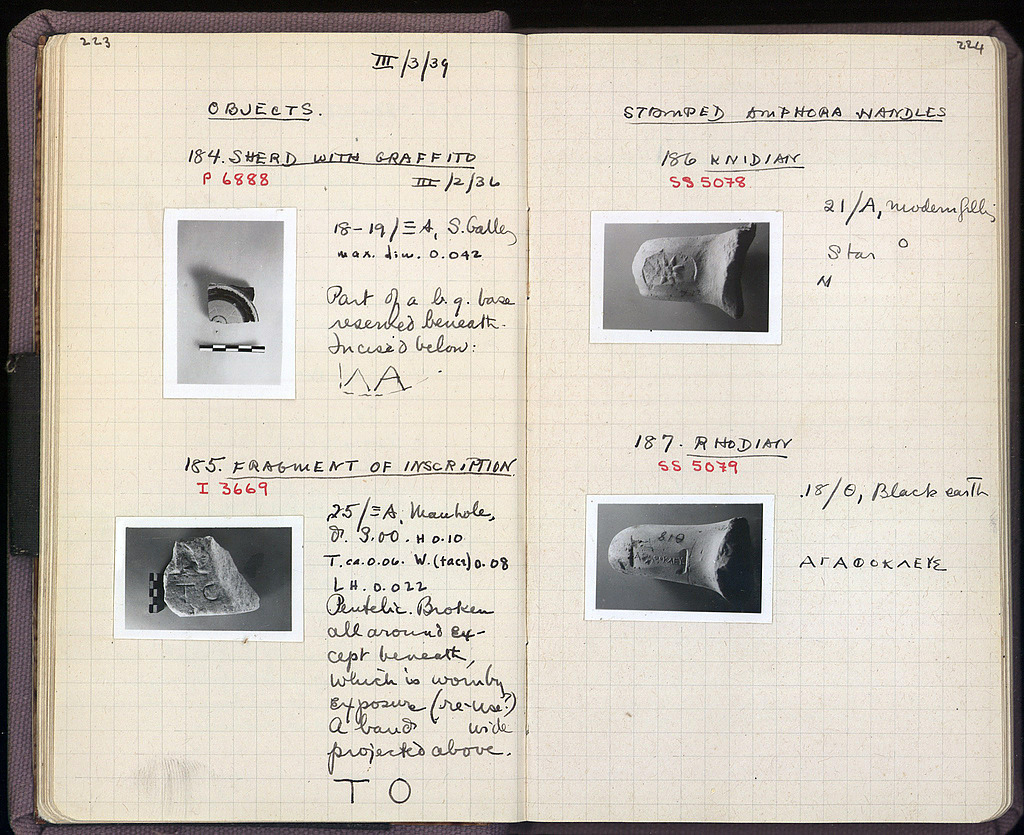 223
III/3/39
OBJECTS.
184. SHERD WITH GRAFFITO
P 6888
III/2/36
18-19/ΞA, S. Galley
max. dim. 0.042
Part of a b.g. base
reserved beneath.
Incised below:
ΛA
185. FRAGMENT OF INSCRIPTION
I 3669
25/ΞA, Manhole,
d. 3.00. H 0.10
T. ca. 0.06. W. (face) 0.08
LH. 0.022
Pentelic. Broken
all around ex-
cept beneath,
which is worn by
exposure (re-use?)
A band wide
projected above.
T O
224
STAMPED AMPHORA HANDLES
186 KNIDIAN
SS 5078
21/A, modern filling
Star O
M
187. RHODIAN
SS 5079
18/Θ, Black earth
ΑΓΑΘΟΚΛΕΥΣ